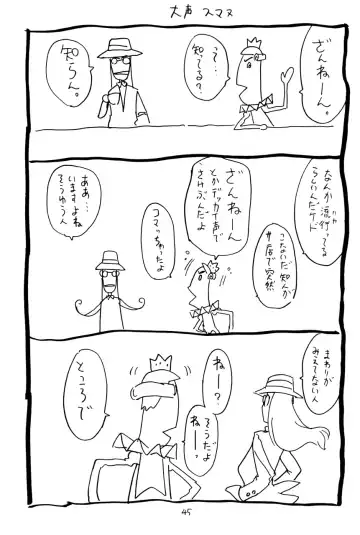 大声 スマヌ
ざんねーん。
って…
知ってる?
知らん。
なんか流行ってる
らしいんだケド
こないだ知人が
お店で突然
ざんねーん
とかデッカイ声で
さけぶんだよ
コマっちゃったよ
ああ…
いますよね
そうゆう人
まわりが
みえてない人
ねー?
そうだよ
ねーっ
ところで
45